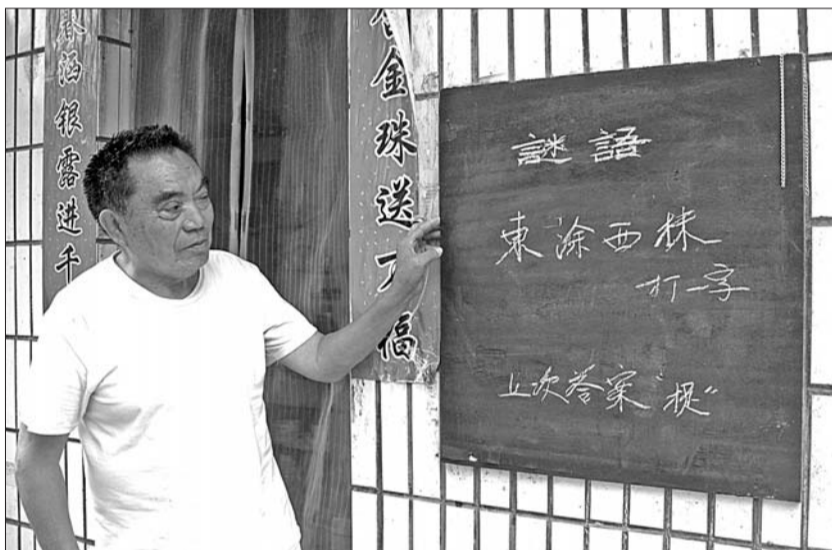 春涵银露进千
金珠送万福
謎語
東涂西抹
打一字
上次答案